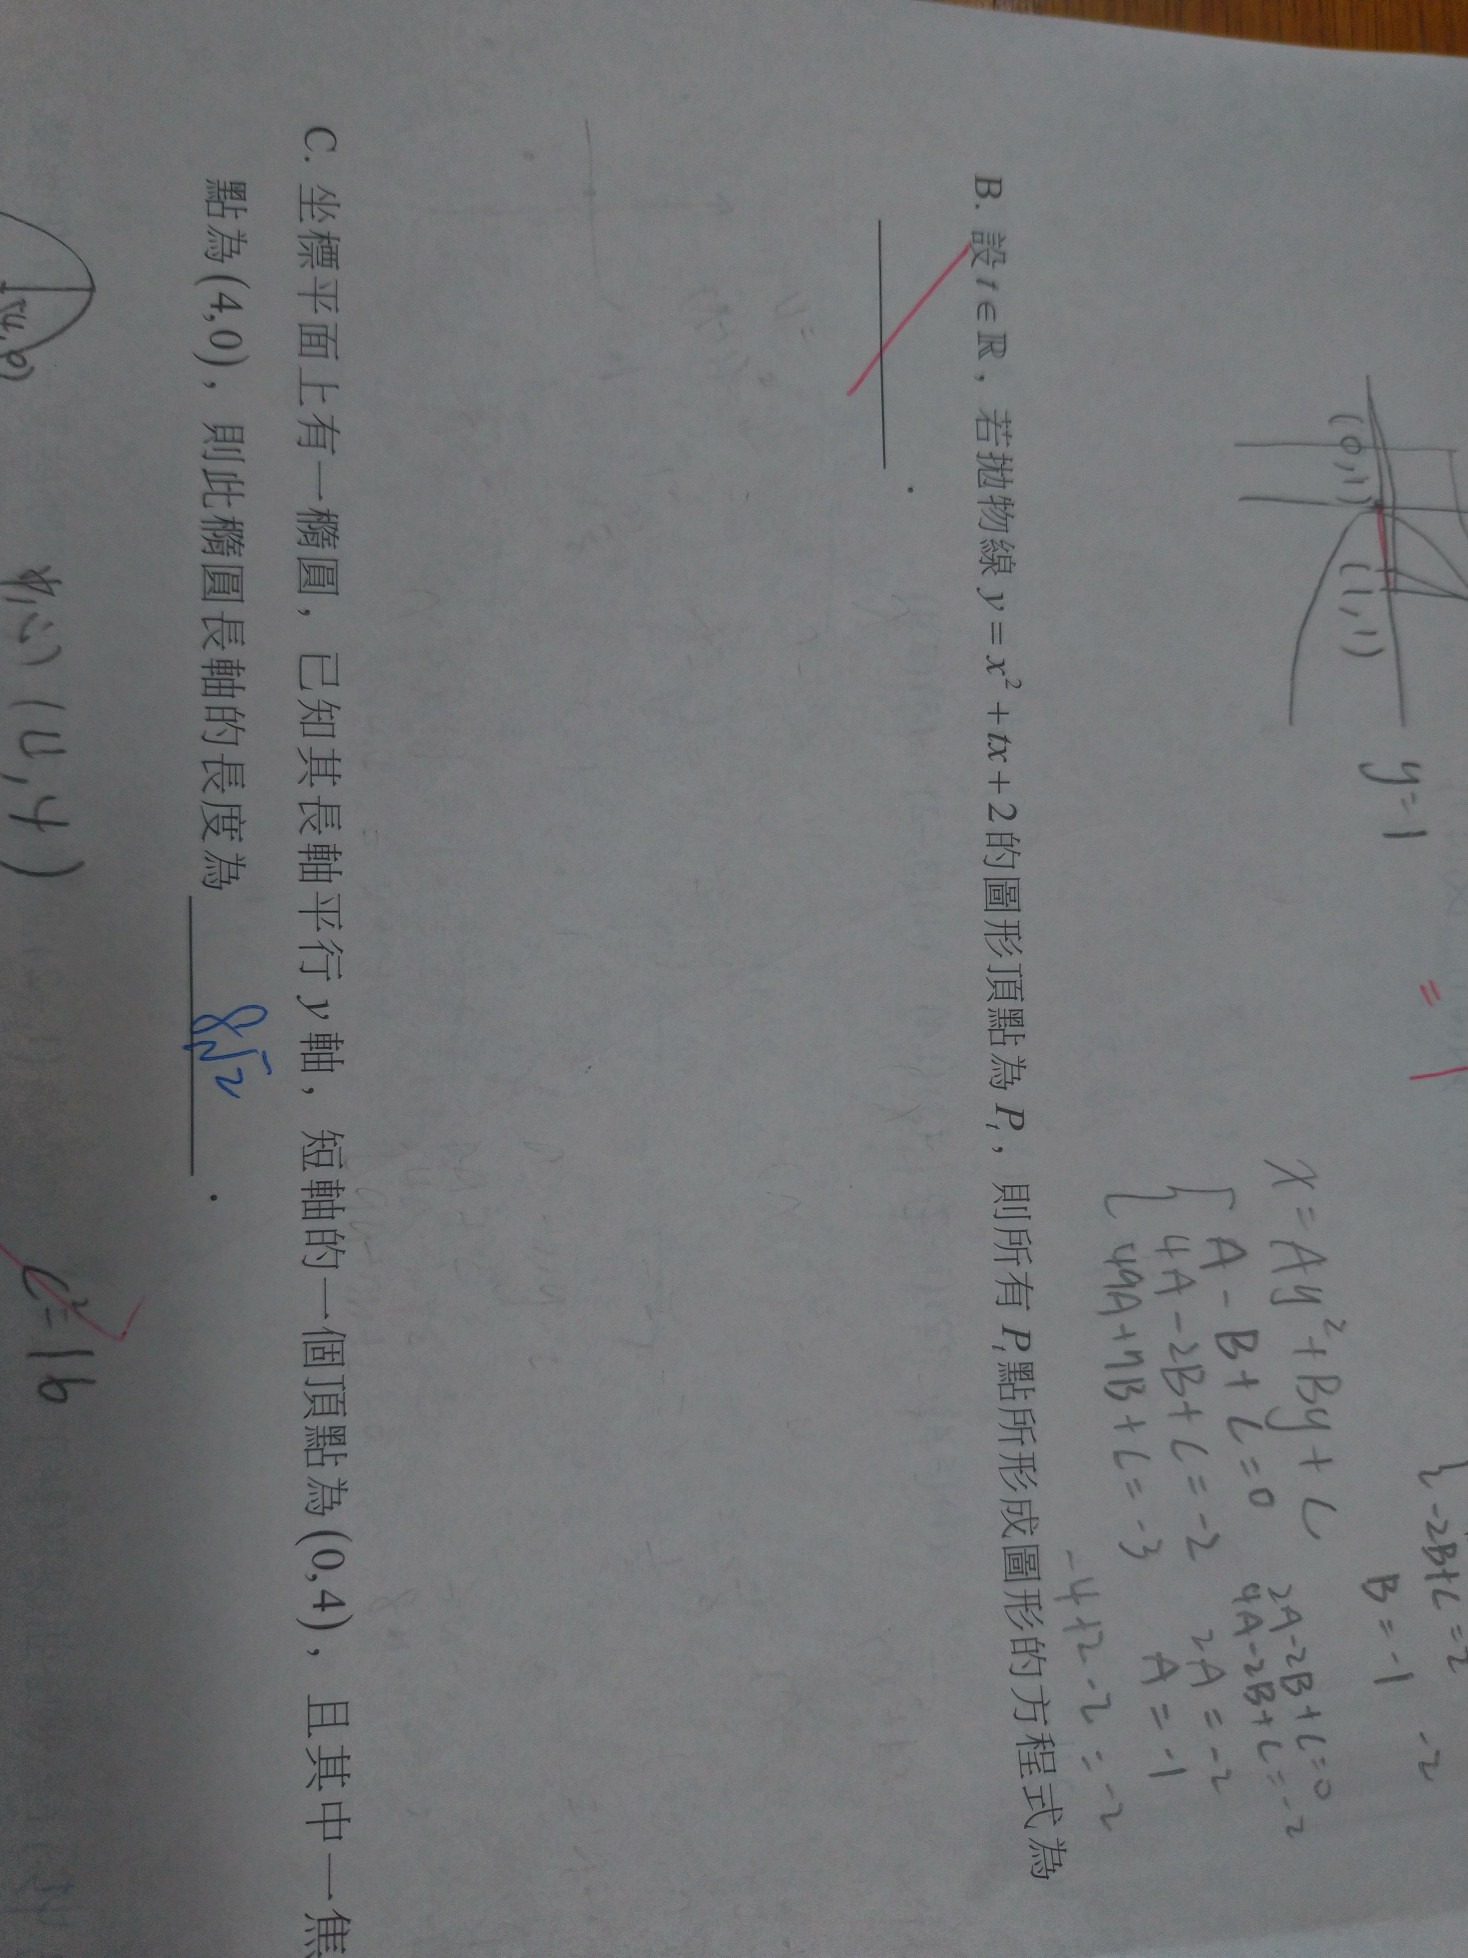 {-2B+C=2
B=-1 -2
y=1
(0,1) (1,1)
x=Ay²+By+C
A-B+C=0
4A-2B+C=-2
49A+7B+C=-3
2A-2B+C=0
4A-2B+C=-2
2A=-2
A=-1
-4+2-2=-2
B. 設 t∈ℝ，若拋物線 y=x²+tx+2 的圖形頂點為 Pₜ，則所有 Pₜ 點所形成圖形的方程式為
.
C. 坐標平面上有一橢圓，已知其長軸平行 y 軸，短軸的一個頂點為 (0,4)，且其中一焦
點為 (4,0)，則此橢圓長軸的長度為 8√2 .
(4,0) 中心(4,4) c²=16